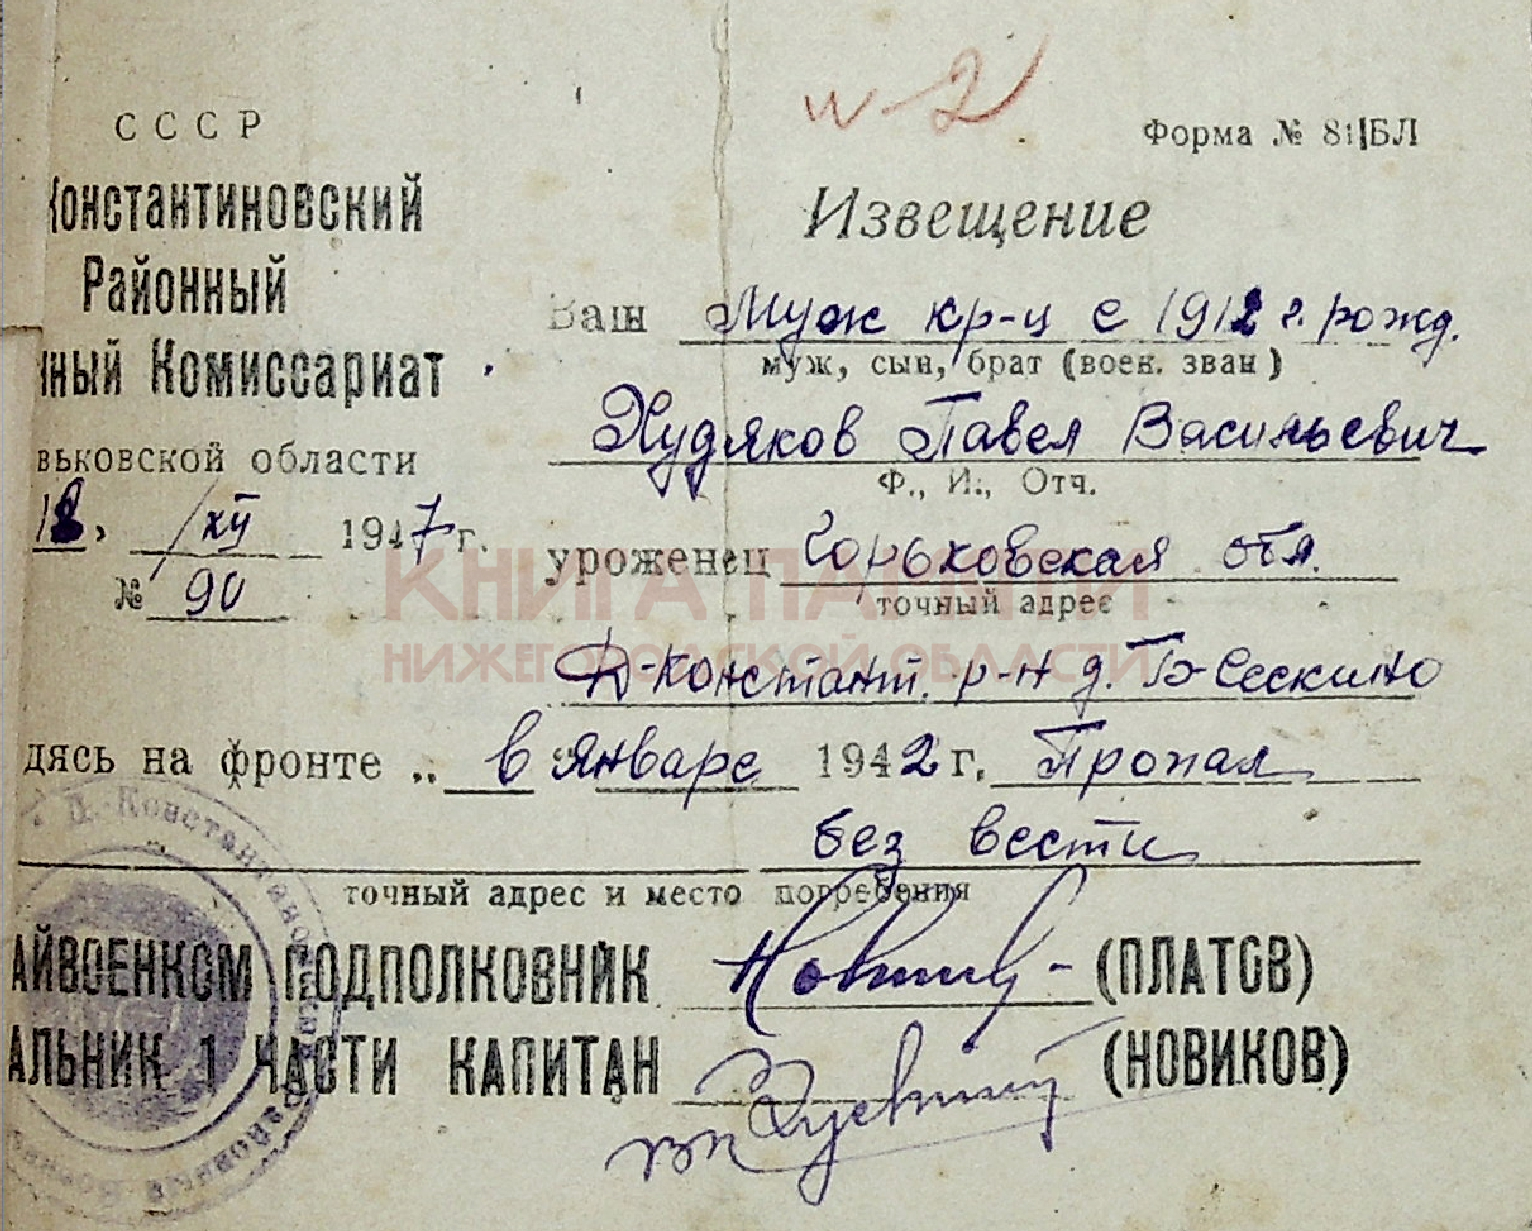 и-2
СССР
Форма № 81 БЛ
Константиновский
Извещение
Районный
Ваш Муж кр-ц с 1912 г. рожд.
нный Комиссариат
муж, сын, брат (воен. зван)
Худяков Павел Васильевич
вьковской области
Ф., И., Отч.
18, /XII 1947 г.
уроженец Горьковская обл.
КНИГА ПАМЯТИ
№ 90
точный адрес
НИЖЕГОРОДСКОЙ ОБЛАСТИ
Д-Констант. р-н д. Б-Сескино
дясь на фронте „ в " январе 1942 г. Пропал
без вести
точный адрес и место погребения
АЙВОЕНКОМ ПОДПОЛКОВНИК (ПЛАТОВ)
АЛЬНИК 1 ЧАСТИ КАПИТАН (НОВИКОВ)
Д.-Константиновский Районный Военн